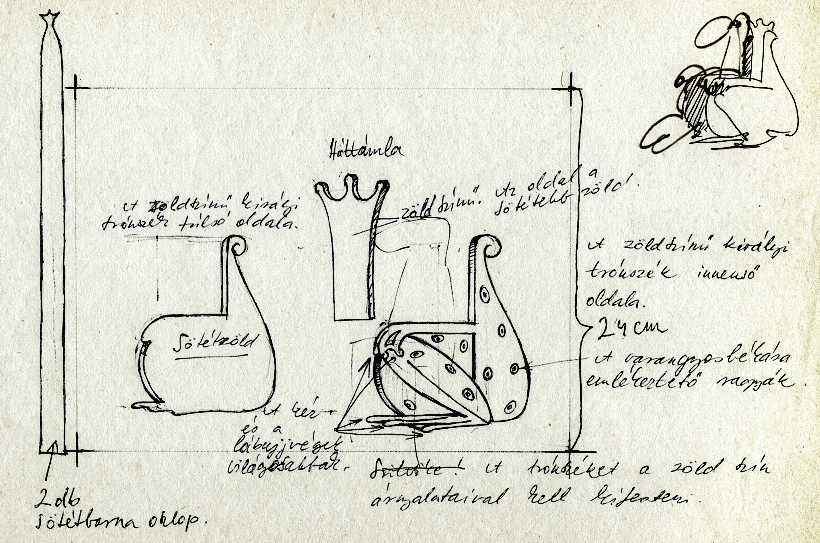 Háttámla
A zöldszínű királyi
trónszék túlsó oldala.
zöldszínű. Az oldal a
sötétebb zöld!
A zöldszínű királyi
trónszék innenső
oldala.
24 cm
A varangyosbékára
emlékeztető
Sötétzöld
A kéz
és a
lábujjvégek
világosabbak.
A trónszéket a zöld szín
árnyalataival kell kifesteni.
2 db
sötétbarna oszlop.